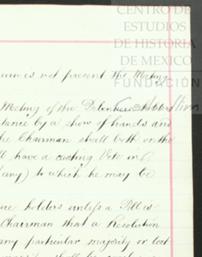 CENTRO DE
ESTUDIOS
DE HISTORIA
DE MÉXICO
FUNDACIÓN
um is not present the Meeting
Meeting of the Debenture
stance by a show of hands and
he Chairman shall both on the
ll have a casting Vote in
any) to which he may be
ure holders unless a Poll is
Chairman that a Resolution
any particular majority or lost